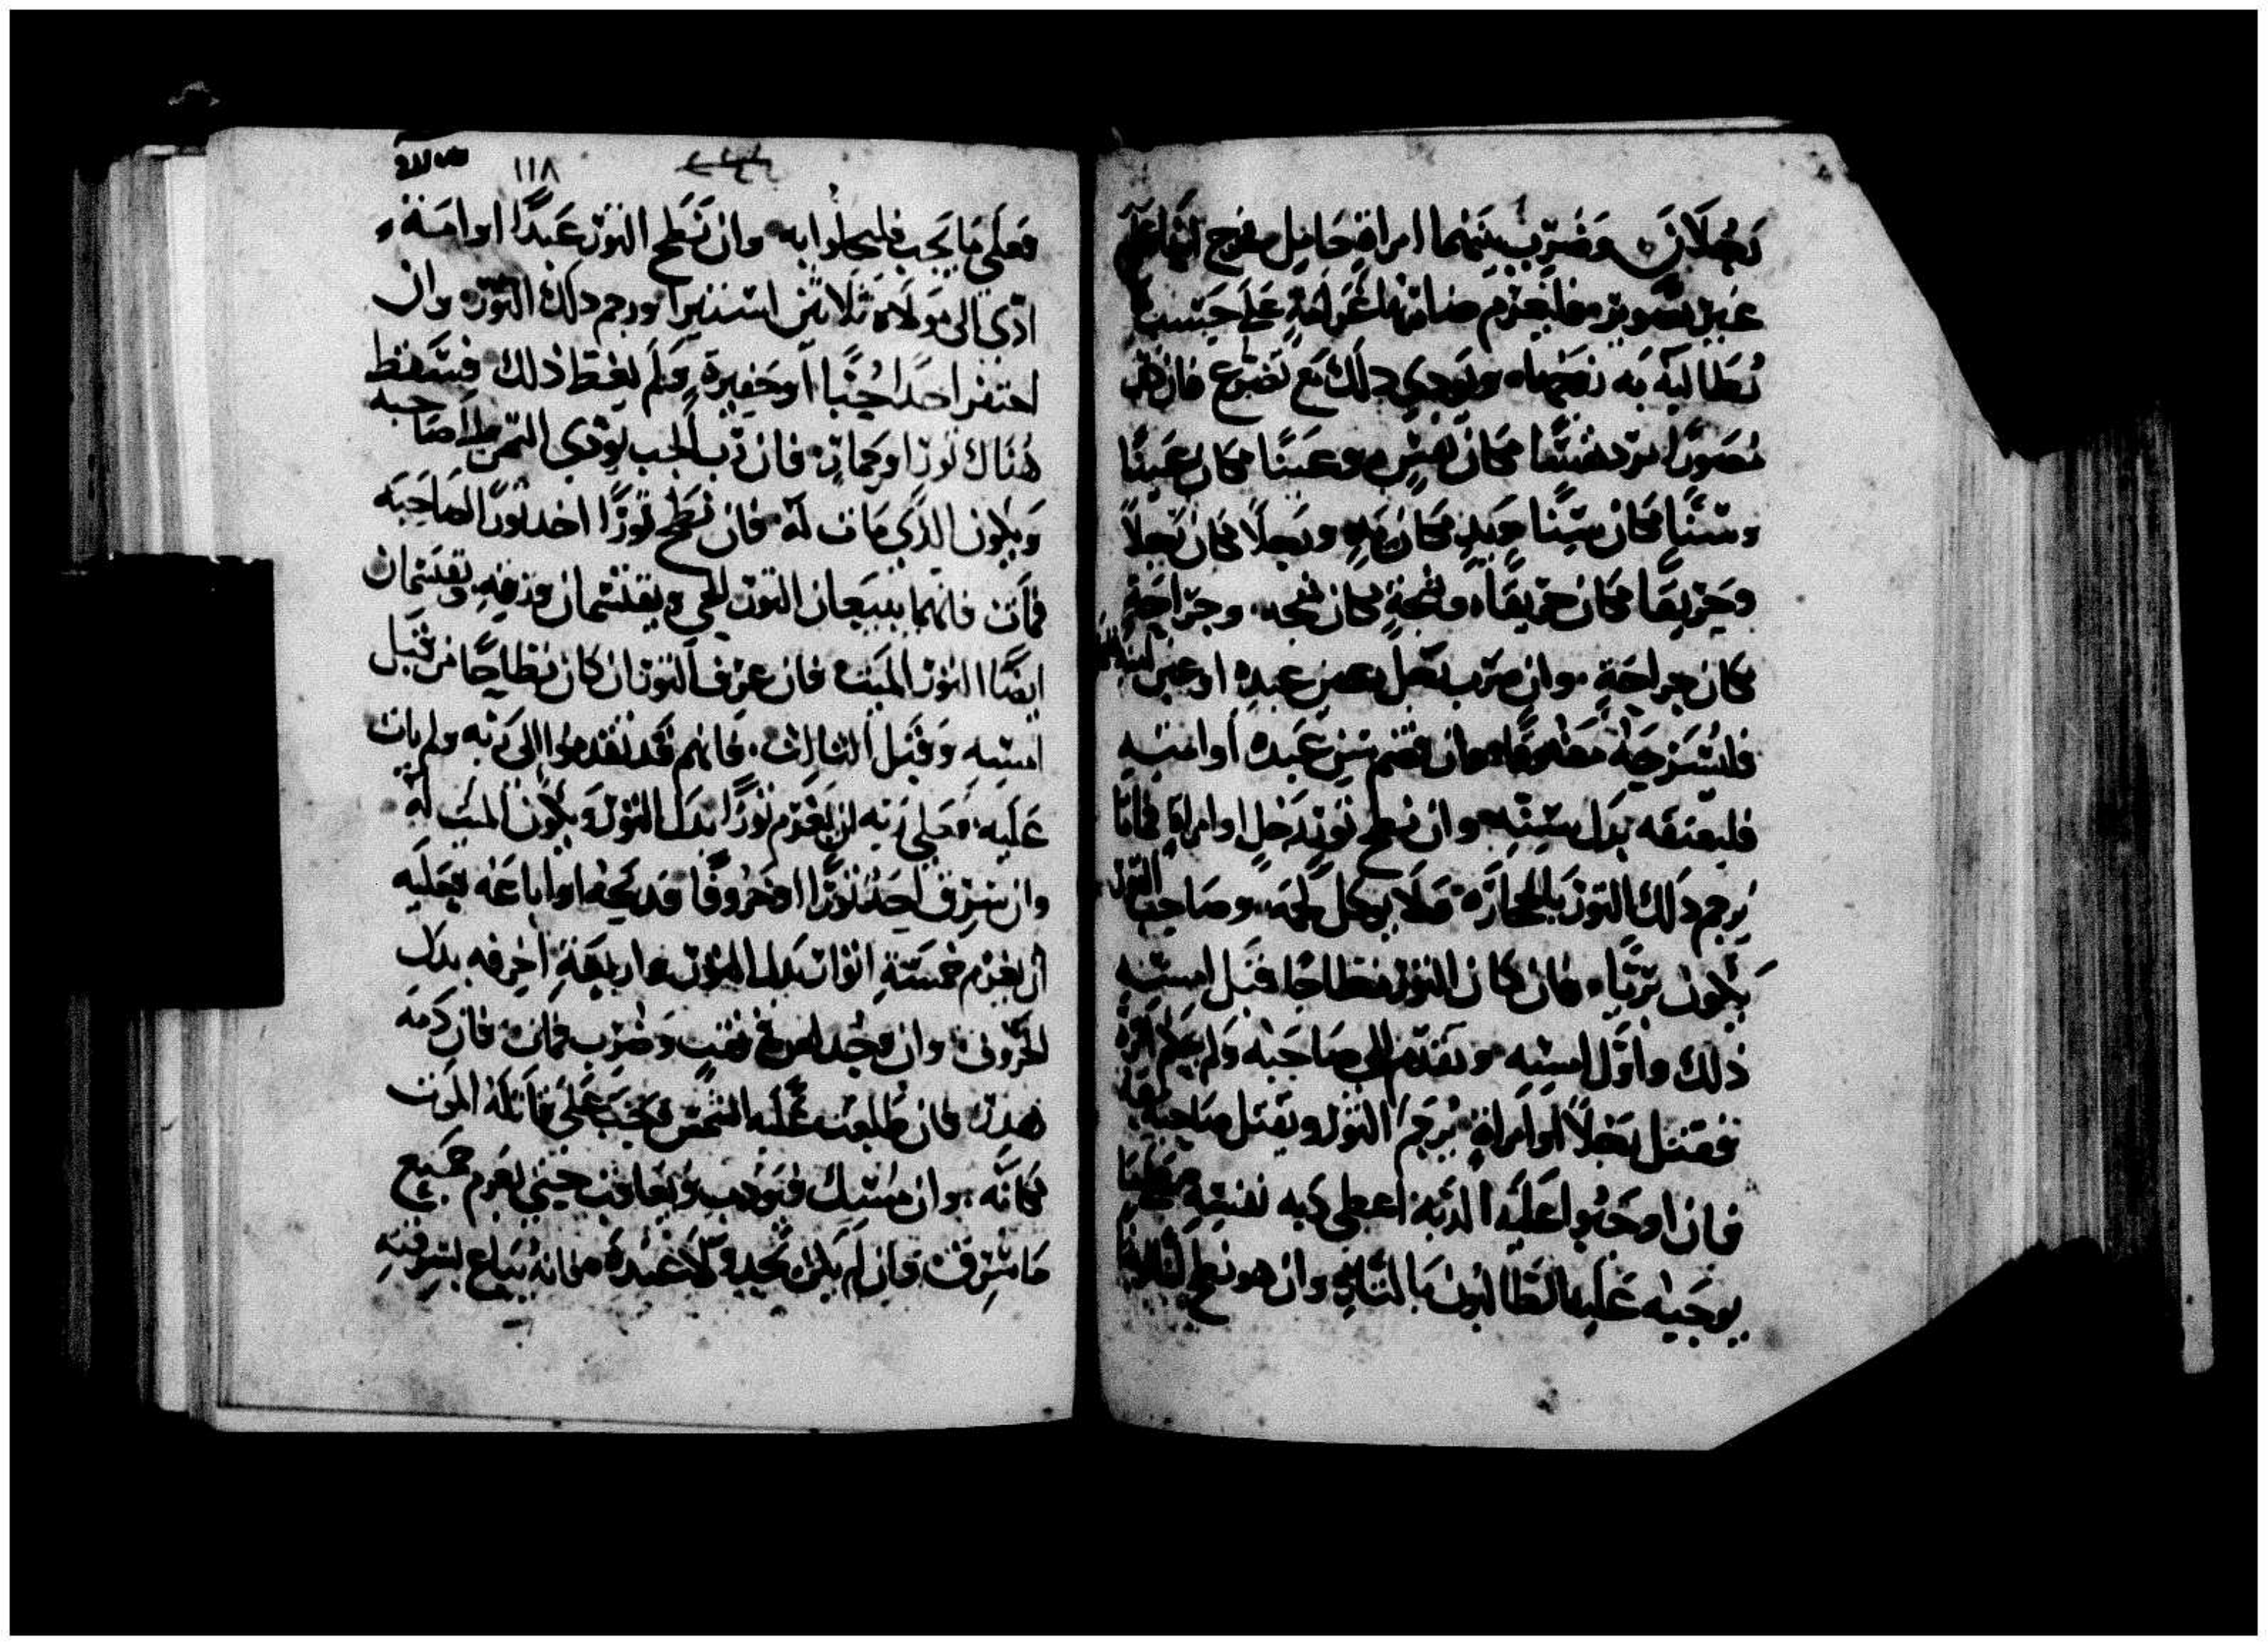 رجلان وضرب بينهما امراة حامل مخرج ابنها على
غير تصوير فليغرم ضاربها غرامة على حسب ما
يطالبه به زوجها ويودي ذلك مع تضرع فان كان
مصورا يرد نفسا مكان نفس وعينا مكان عينا
وسنا مكان سنا ويد مكان يد ورجلا مكان رجلا
وحريقا مكان حريقا وشجة مكان شجه وجراحة
مكان جراحة وان ضرب رجل عين عبده او عين امته
فليسرحه معتوقا وان قضم سن عبده او امته
فليعتقه بدل سنه وان نطح ثور رجل او امراة فماتا
يرجم ذلك الثور بالحجارة ولا يوكل لحمه وصاحب الثور
يكون بريا فان كان الثور نطاحا قبل امسه
ذلك واول امسه وتقدم الى صاحبه ولم يعلم
فقتل رجلا او امراة يرجم الثور ويقتل صاحبه
فان اوجبوا عليه الديه اعطى ديه نفسه
يوجبه عليه الطالبون بالثار وان هو نطح
١١٨
فعلى ما يجب فليحلوا به وان نطح الثور عبدا او امة
ادى الى مولاه ثلاثين استيرا ورجم ذلك الثور وان
احتفر احد جبا او حفيرة ولم يغط ذلك فيسقط
هناك ثورا وحمار فان رب الجب يودي الثمن الى صاحبه
ويكون الذي مات له فان نطح ثورا اخد ثورا لصاحبه
فمات فانهما يبيعان الثور الحي ويقتسمان ورقه ويقتسمان
ايضا الثور الميت فان عرف الثور ان كان نطاحا من قبل
امسه وقبل الثالث فانهم قد تقدموا الى ربه ولم يات
عليه فعلى ربه ان يغرم ثورا بدل الثور ويكون الميت له
وان سرق احد ثورا او خروفا فدبحه او اباعه فعليه
ان يغرم خمسة اثوار بدل الثور واربعة اخرفه بدل
الخروف وان وجد لص في نقب وضرب فمات فان دمه
هدر فان طلعت عليه الشمس فيجب على قاتله الموت
مكانه وان مسك فيودب ويعاقب حتى يغرم جميع
ما سرق فان لم يكن بيديه فلا عبده فانه يباع بسرقته